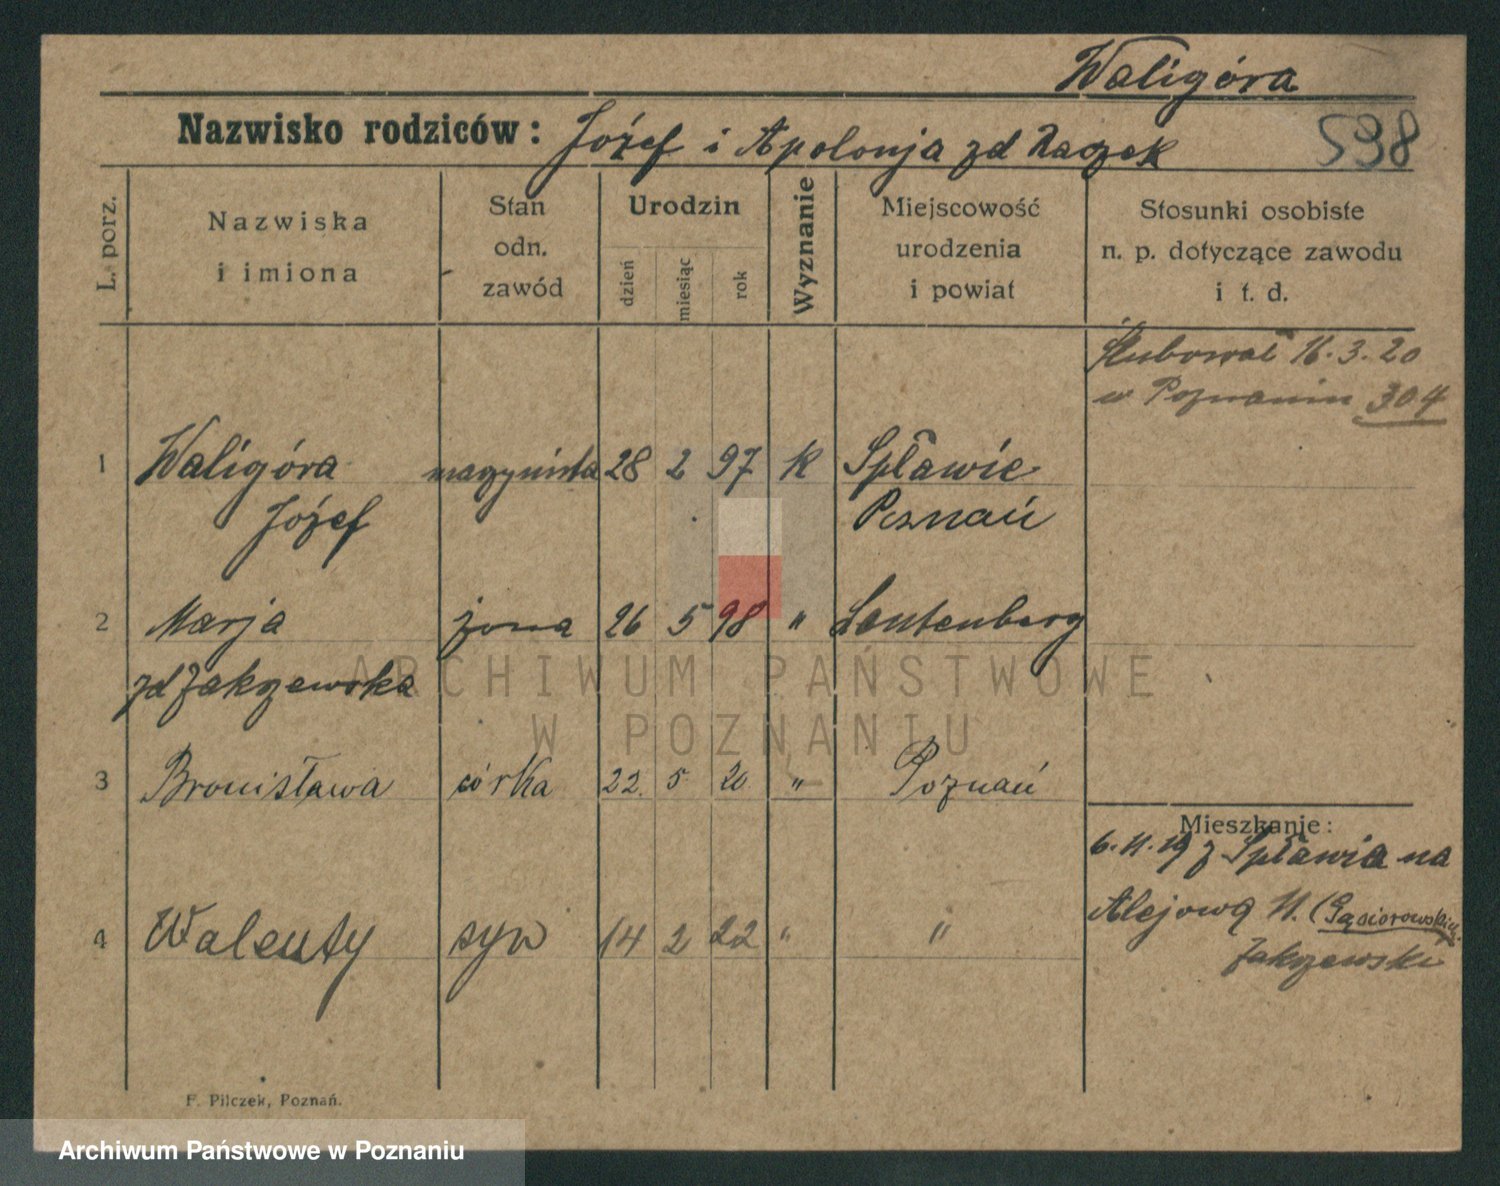 Waligóra
Nazwisko rodziców: Józef i Apolonja zd Raczek
598
L. porz.
Nazwiska
i imiona
Stan
odn.
zawód
Urodzin
dzień
miesiąc
rok
Wyznanie
Miejscowość
urodzenia
i powiat
Stosunki osobiste
n. p. dotyczące zawodu
i t. d.
Ślubował 16.3.20
w Poznaniu 304
1 Waligóra maszynista 28 2 97 K Spławie
Józef Poznań
2 Marja żona 26 5 98 " Lautenberg
zd Zakrzewska
3 Bronisława córka 22. 5 20 " Poznań
Mieszkanie:
6.11.19 z Spławia na
Alejową 11. (Gąsiorowskich
Zakrzewski
4 Walenty syn 14 2 22 " "
F. Pilczek, Poznań.
ARCHIWUM PAŃSTWOWE
W POZNANIU
Archiwum Państwowe w Poznaniu